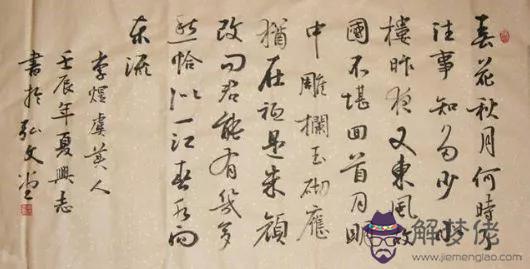 春花秋月何時了
往事知多少小
樓昨夜又東風故
國不堪回首月明
中雕欄玉砌應
猶在祗是朱顏
改問君能有幾多
愁恰似一江春水向
东流
李煜虞美人
壬辰年夏興志
書於弘文堂
解梦佬
www.jiemenglao.com